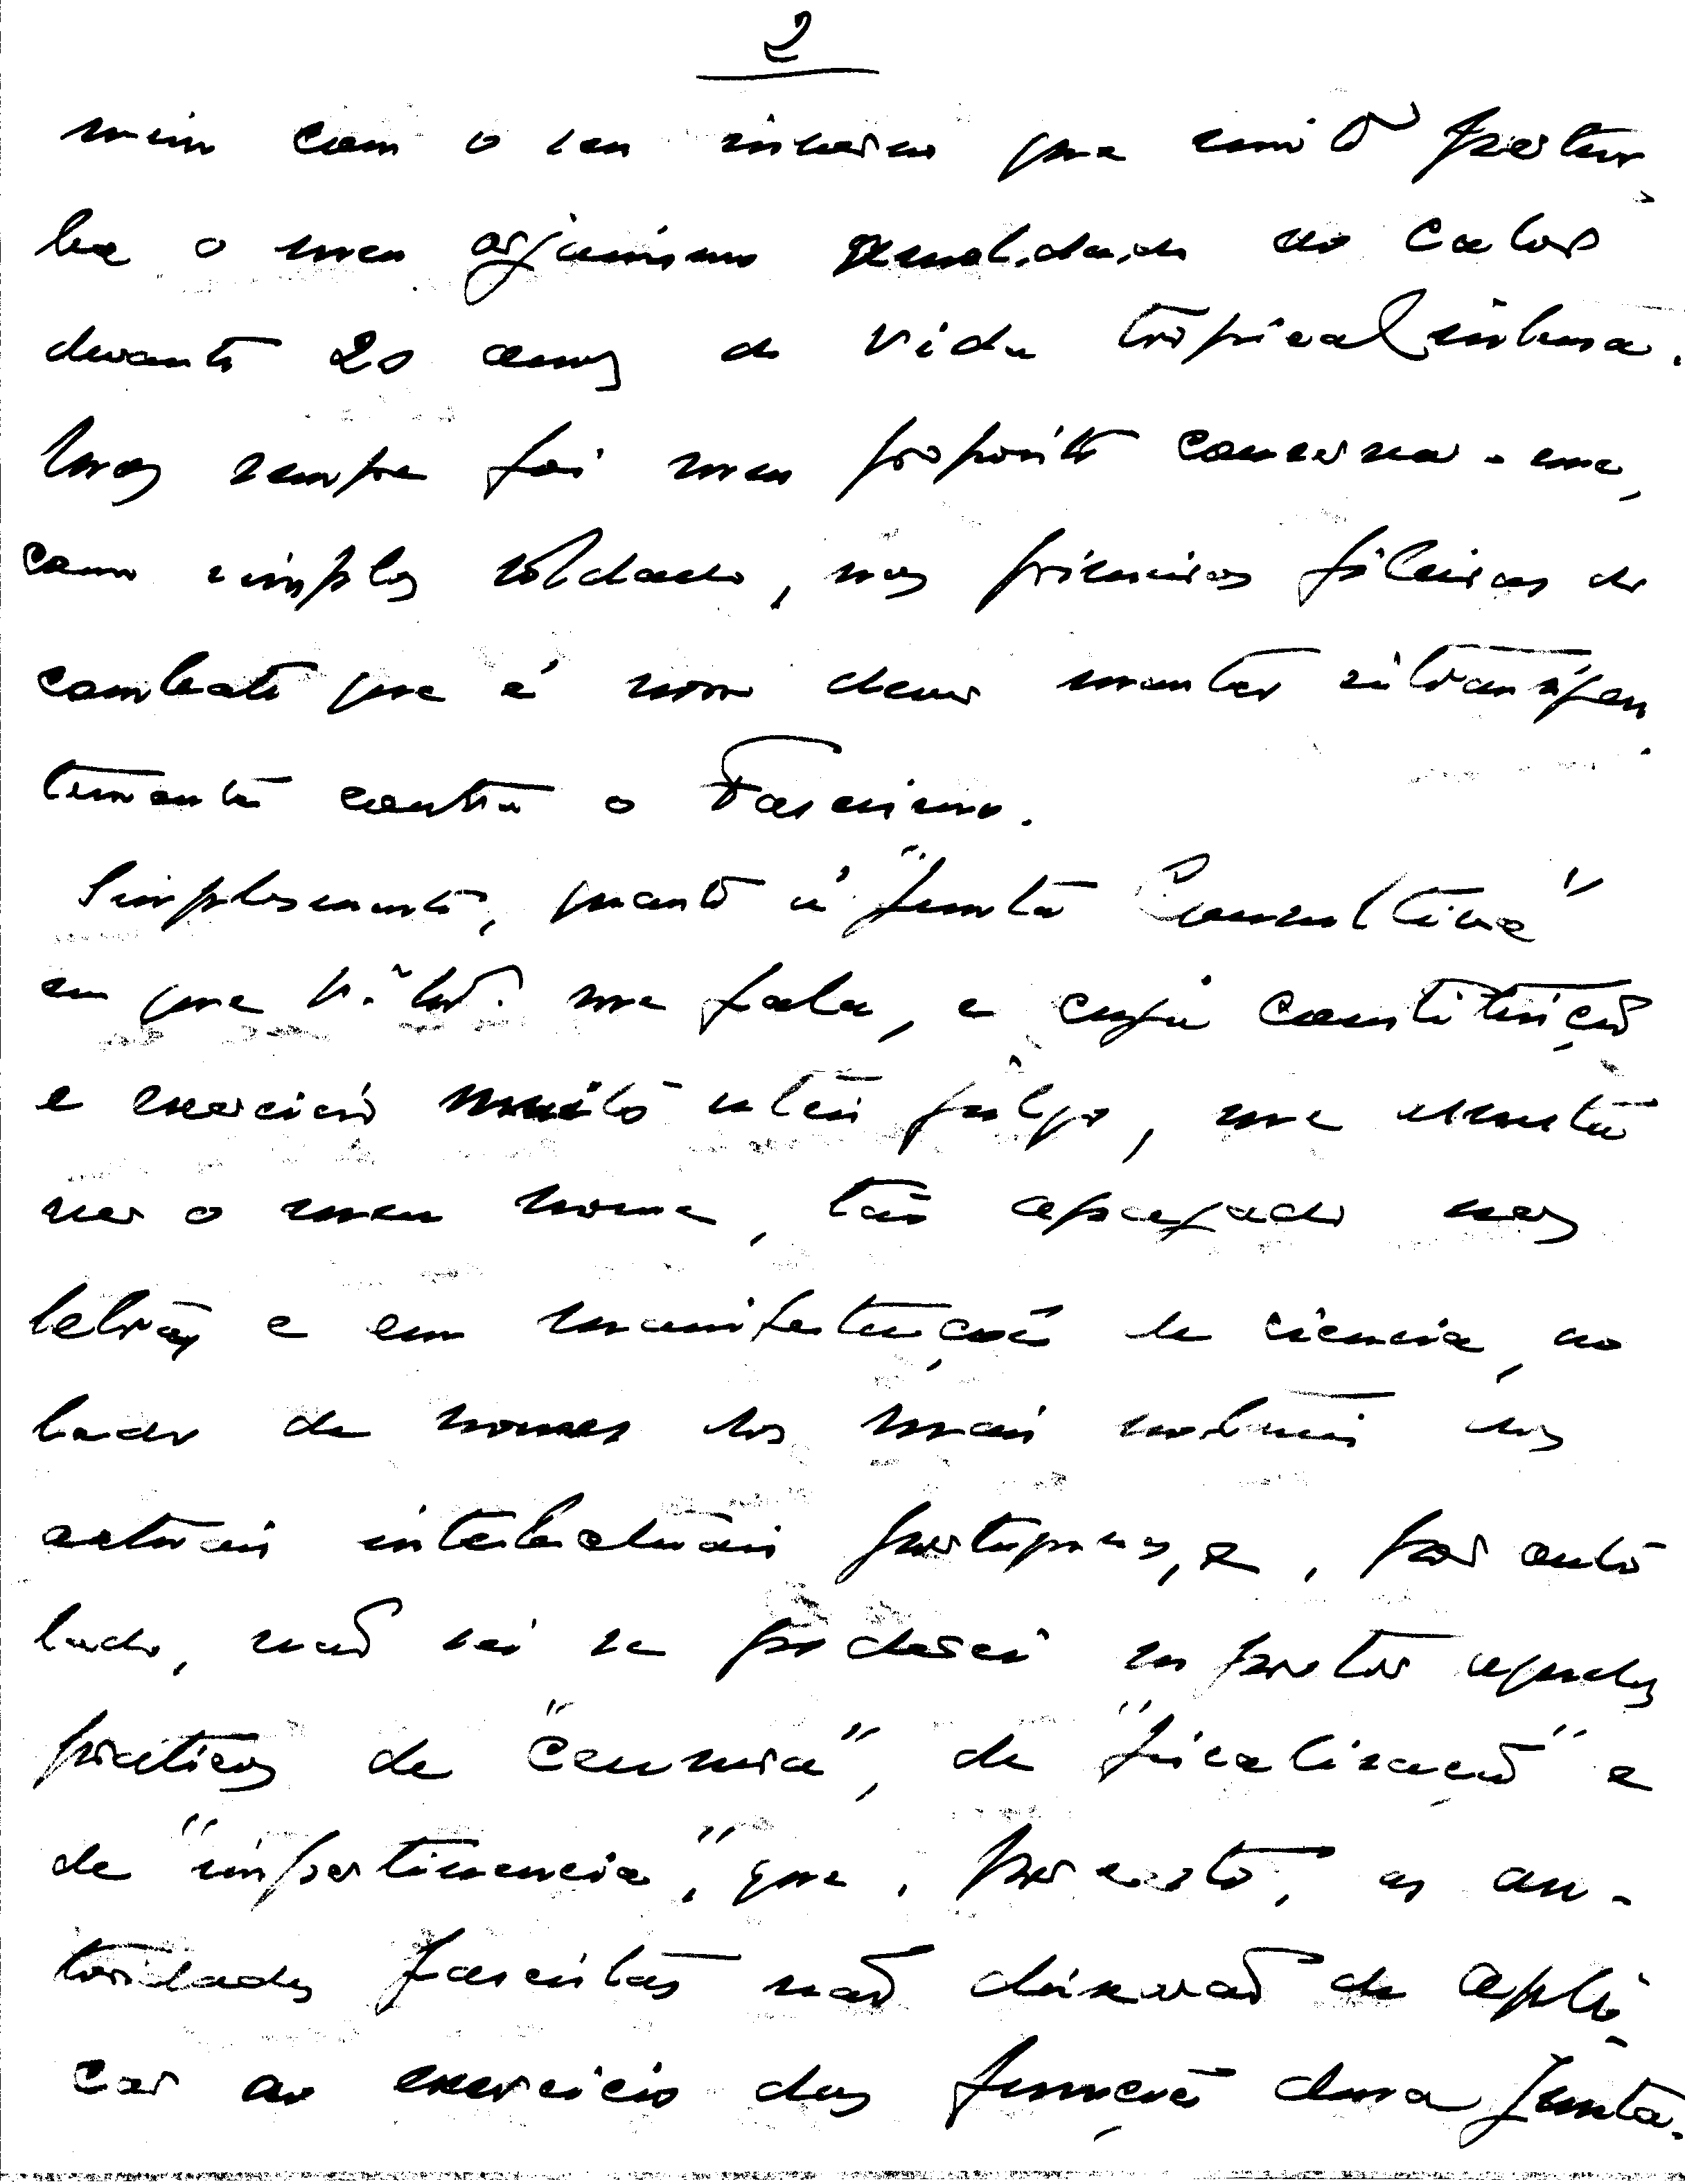 2
mim com o seu inverno que muito pertur-
ba o meu organismo  ao calor
durante 20 anos de vida tropical intensa.
Mas sempre foi meu proposito conservar-me,
como simples soldado, nas primeiras fileiras do
combate que é nosso dever manter intransigen-
temente contra o Fascismo.
Simplesmente, quanto á "Junta Consultiva"
em que V. me fala, e cuja constituição
e exercicio muito util julgo, me assusta
ver o meu nome, tão apagado nas
letras e em manifestações de ciencia, ao
lado de nomes dos mais notaveis dos
actuais intelectuais portugueses, e, por outro
lado, não sei se poderei suportar aquelas
praticas de "censura", de "fiscalisação" e
de "impertinencia", que, por certo, as au-
toridades fascistas não deixarão de apli-
car ao exercicio das funções dessa Junta.